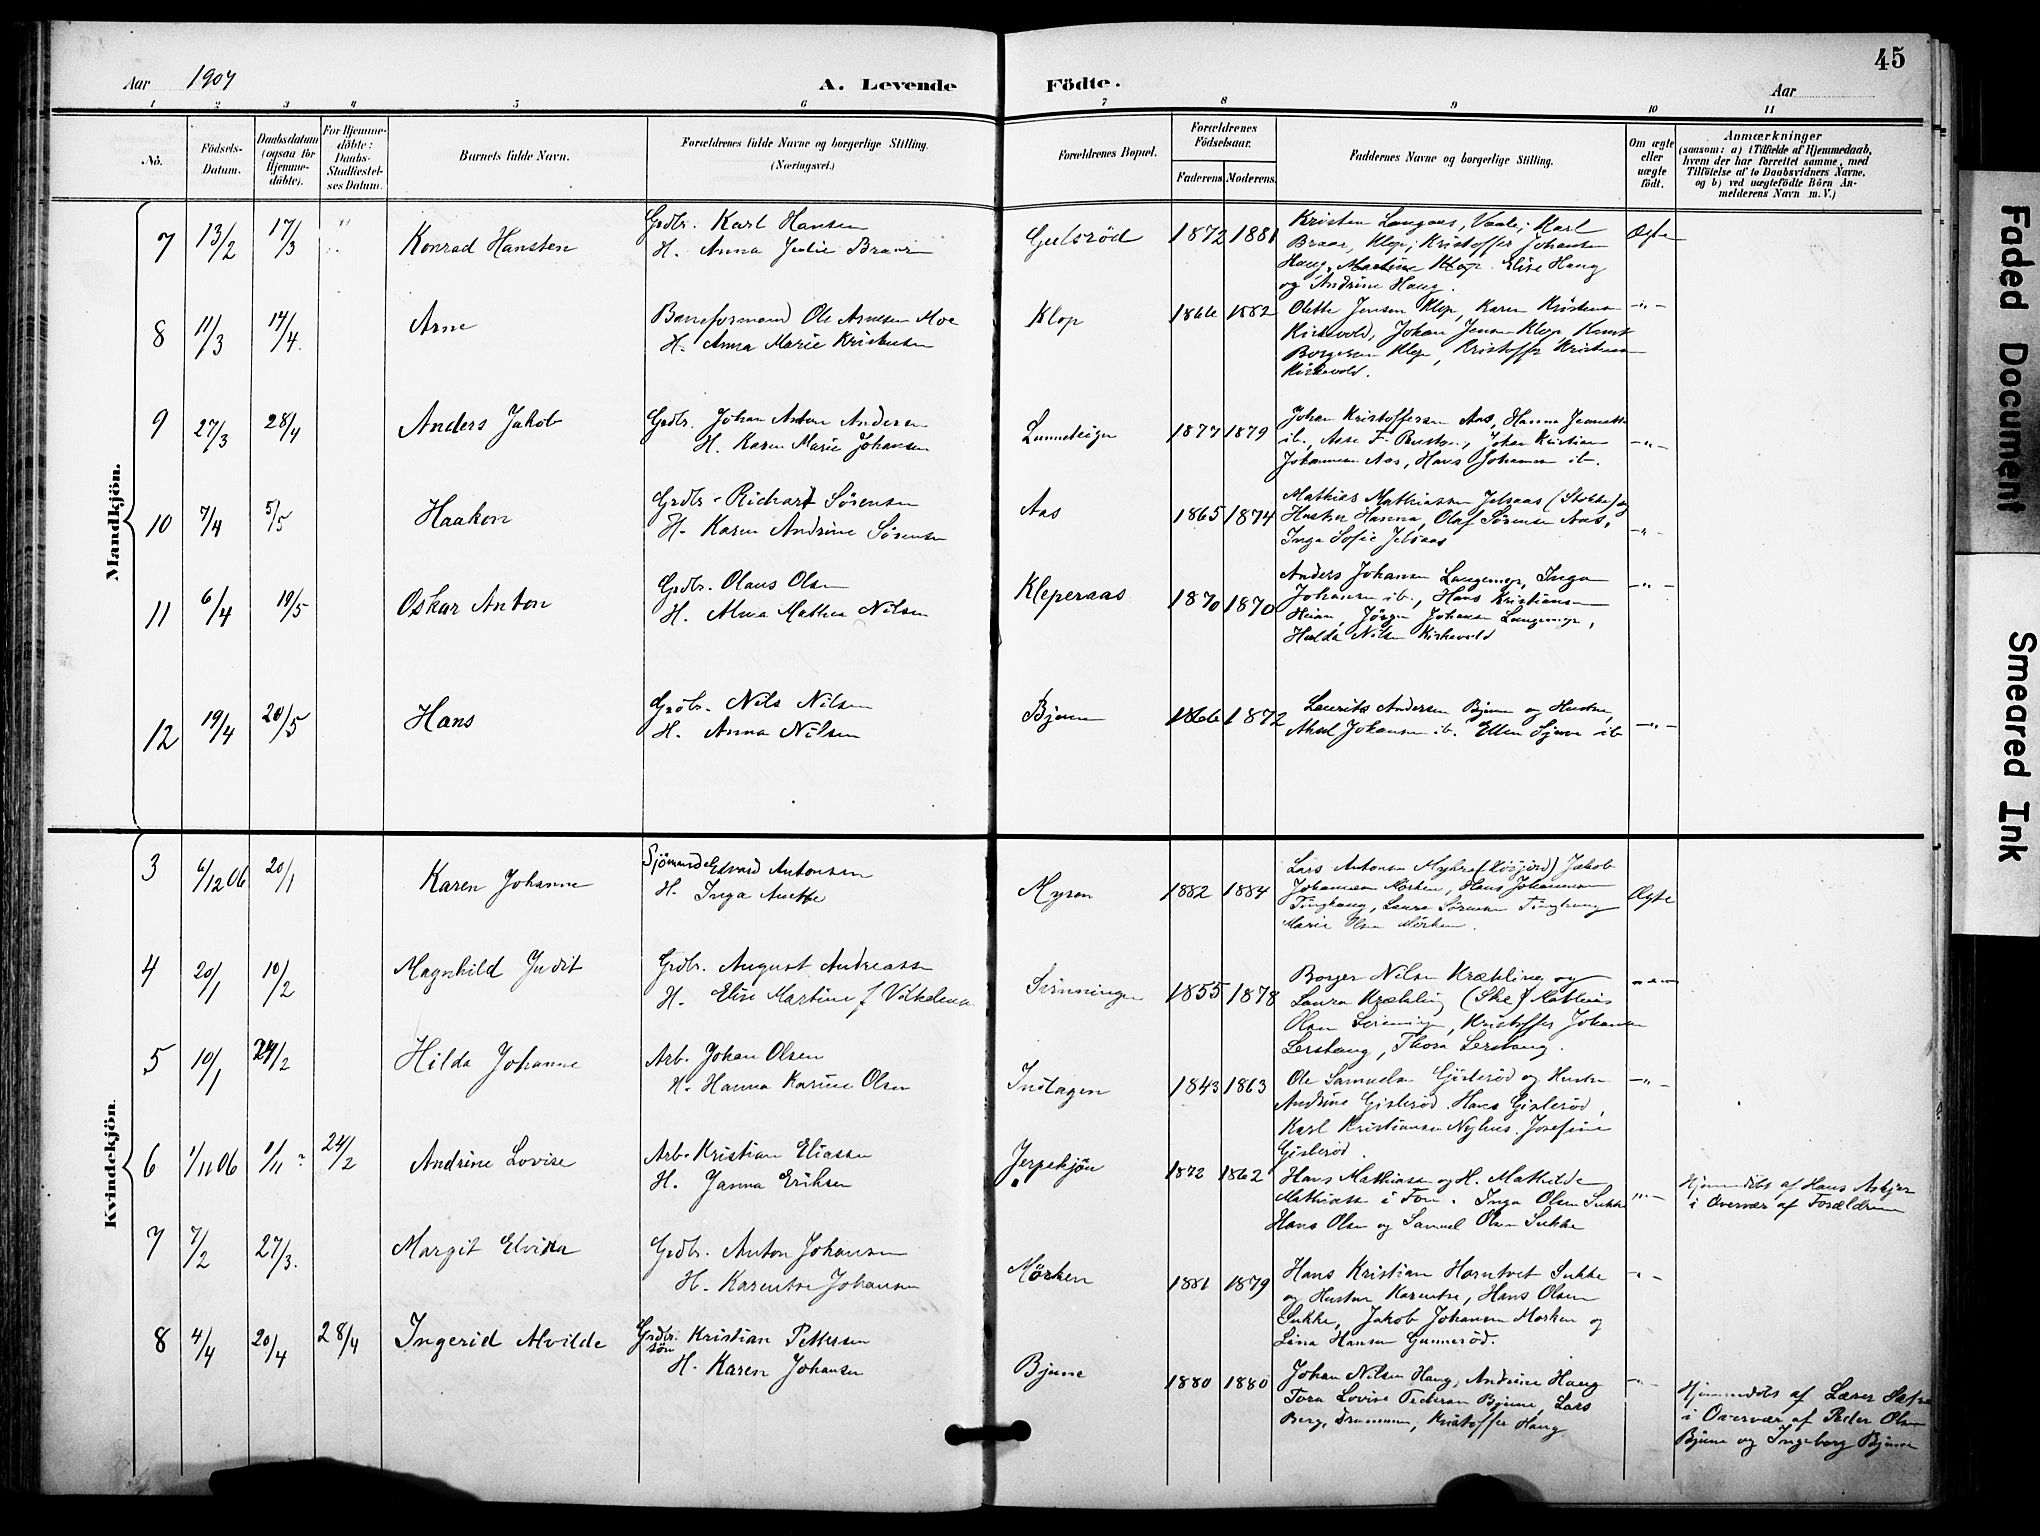 45
Aar 1907 A. Levende Födte. Aar
1 2 3 4 5 6 7 8 9 10 11
No.
Födsels-Datum.
Daabsdatum (ogsaa for Hjemme-döbte).
For Hjemme-döbte: Daabs-Stadfæstel-ses Datum.
Barnets fulde Navn.
Forældrenes fulde Navne og borgerlige Stilling.
(Næringsvei.)
Forældrenes Bopæl.
Forældrenes Födselsaar.
Faderens Moderens
Faddernes Navne og borgerlige Stilling.
Om ægte eller uægte födt.
Anmærkninger
(saasom: a) i Tilfælde af Hjemmedaab, hvem der har forrettet samme, med Tilföielse af to Daabsvidners Navne, og b) ved uægtefödte Börn Anmelderens Navn m. V.)
Mandkjön.
7 13/2 17/3 Konrad Hansten
Grdbr. Karl Hansen
H. Anna Julie Braar
Gulsröd 1872 1881
Kristen Langaas, Vaale; Karl
Braar, Klop; Kristoffer Johansen
Haug, Martine Klop. Elise Haug
og Andrine Haug.
Ægte
8 11/3 14/4 Arne
Baneformand Ole Arnesen Moe
H. Anna Marie Kristensen
Klop 1866 1882
Olette Jensen Klop, Karen Kristensen
Kirkevold, Johan Jensen Klop,
Borgersen Klop, Kristoffer Kristensen
Kirkevold.
9 27/3 28/4 Anders Jakob
Grdbr. Johan Anton Andersen
H. Karen Marie Johansen
1877 1879
Johan Kristoffersen Aas, Hanna
ib., Johan Kristian
Johannesen Aas, Hans Johansen ib.
10 7/4 5/5 Haakon
Grdbr. Richart Sörensen
H. Karen Andrine Sörensen
Aas 1865 1874
Mathias Mathiassen Jelsaas (Stokke) og
Hustru Hanna, Olaf Sörensen Aas,
Inga Sofie Jelsaas
11 6/4 19/5 Oskar Anton
Grdbr. Olaus Olsen
H. Alma Mathea Nilsen
Kleperaas 1870 1870
Anders Johansen Langemyr, Inga
Johansen ib., Hans Kristiansen
Heian, Jörgen Johansen Langemyr,
Hulda Nilsen Kirkevold
12 19/4 20/5 Hans
Grdbr. Nils Nilsen
H. Anna Nilsen
Bjune 1866 1872
Laurits Andersen Bjune og Hustru,
Johansen ib. Ellen Bjune ib
Kvindekjön.
3 6/12 06 20/1 Karen Johanne
Sjömand Edvard Antonsen
H. Inga Anette
Myren 1882 1884
Lars Antonsen Myhre Jakob
Johannesen Mörken, Hans Johannesen
Tinghaug, Laura Sörensen Tinghaug
Marie Olsen Mörken.
Ægte
4 20/1 10/2 Magnhild Judit
Grdbr. August Andreassen
H. Elise Martine f Vilhelmsen
1855 1878
Borger Nilsen Krækling og
Laura Krækling Mathias
Olsen Kristoffer Johansen
Lershaug, Thora Lershaug.
5 10/1 24/2 Hilda Johanne
Arb. Johan Olsen
H. Hanna Karine Olsen
Indlagen 1843 1863
Ole Samuelsen Gisleröd og Hustru
Andrine Gisleröd. Hans Gisleröd,
Karl Kristiansen Nyhus. Josefine
Gisleröd.
6 1/11 06 1/11 24/2 Andrine Lovise
Arb. Kristian Eliassen
H. Janna Eriksen
Jerpekjön 1872 1862
Hans Mathiassen og H. Mathilde
Mathiassen i Inga Olsen Sukke
Hans Olsen og Samuel Olsen Sukke
Hjemmedöbt af Hans Askjer
i Overvær af Forældrene
7 7/2 27/3 Margit Elvina
Grdbr. Anton Johansen
H. Karentse Johansen
Mörken 1881 1879
Hans Kristian Horntvet Sukke
og Hustru Karentse, Hans Olsen
Sukke, Jakob Johansen Mörken og
Lina Hansen Gunneröd.
8 4/4 20/4 28/4 Ingerid Alvilde
Grdbr. sön Kristian Pettersen
H. Karen Johansen
Bjune 1880 1880
Johan Nilsen Haug, Andrine Haug
Tora Lovise Pedersen Bjune, Lars
Berg, Drammen, Kristoffer Haug
Hjemmedöbt af Lærer
i Overvær af Peder Olsen
Bjune og Ingeborg Bjune
Faded Document
Smeared Ink